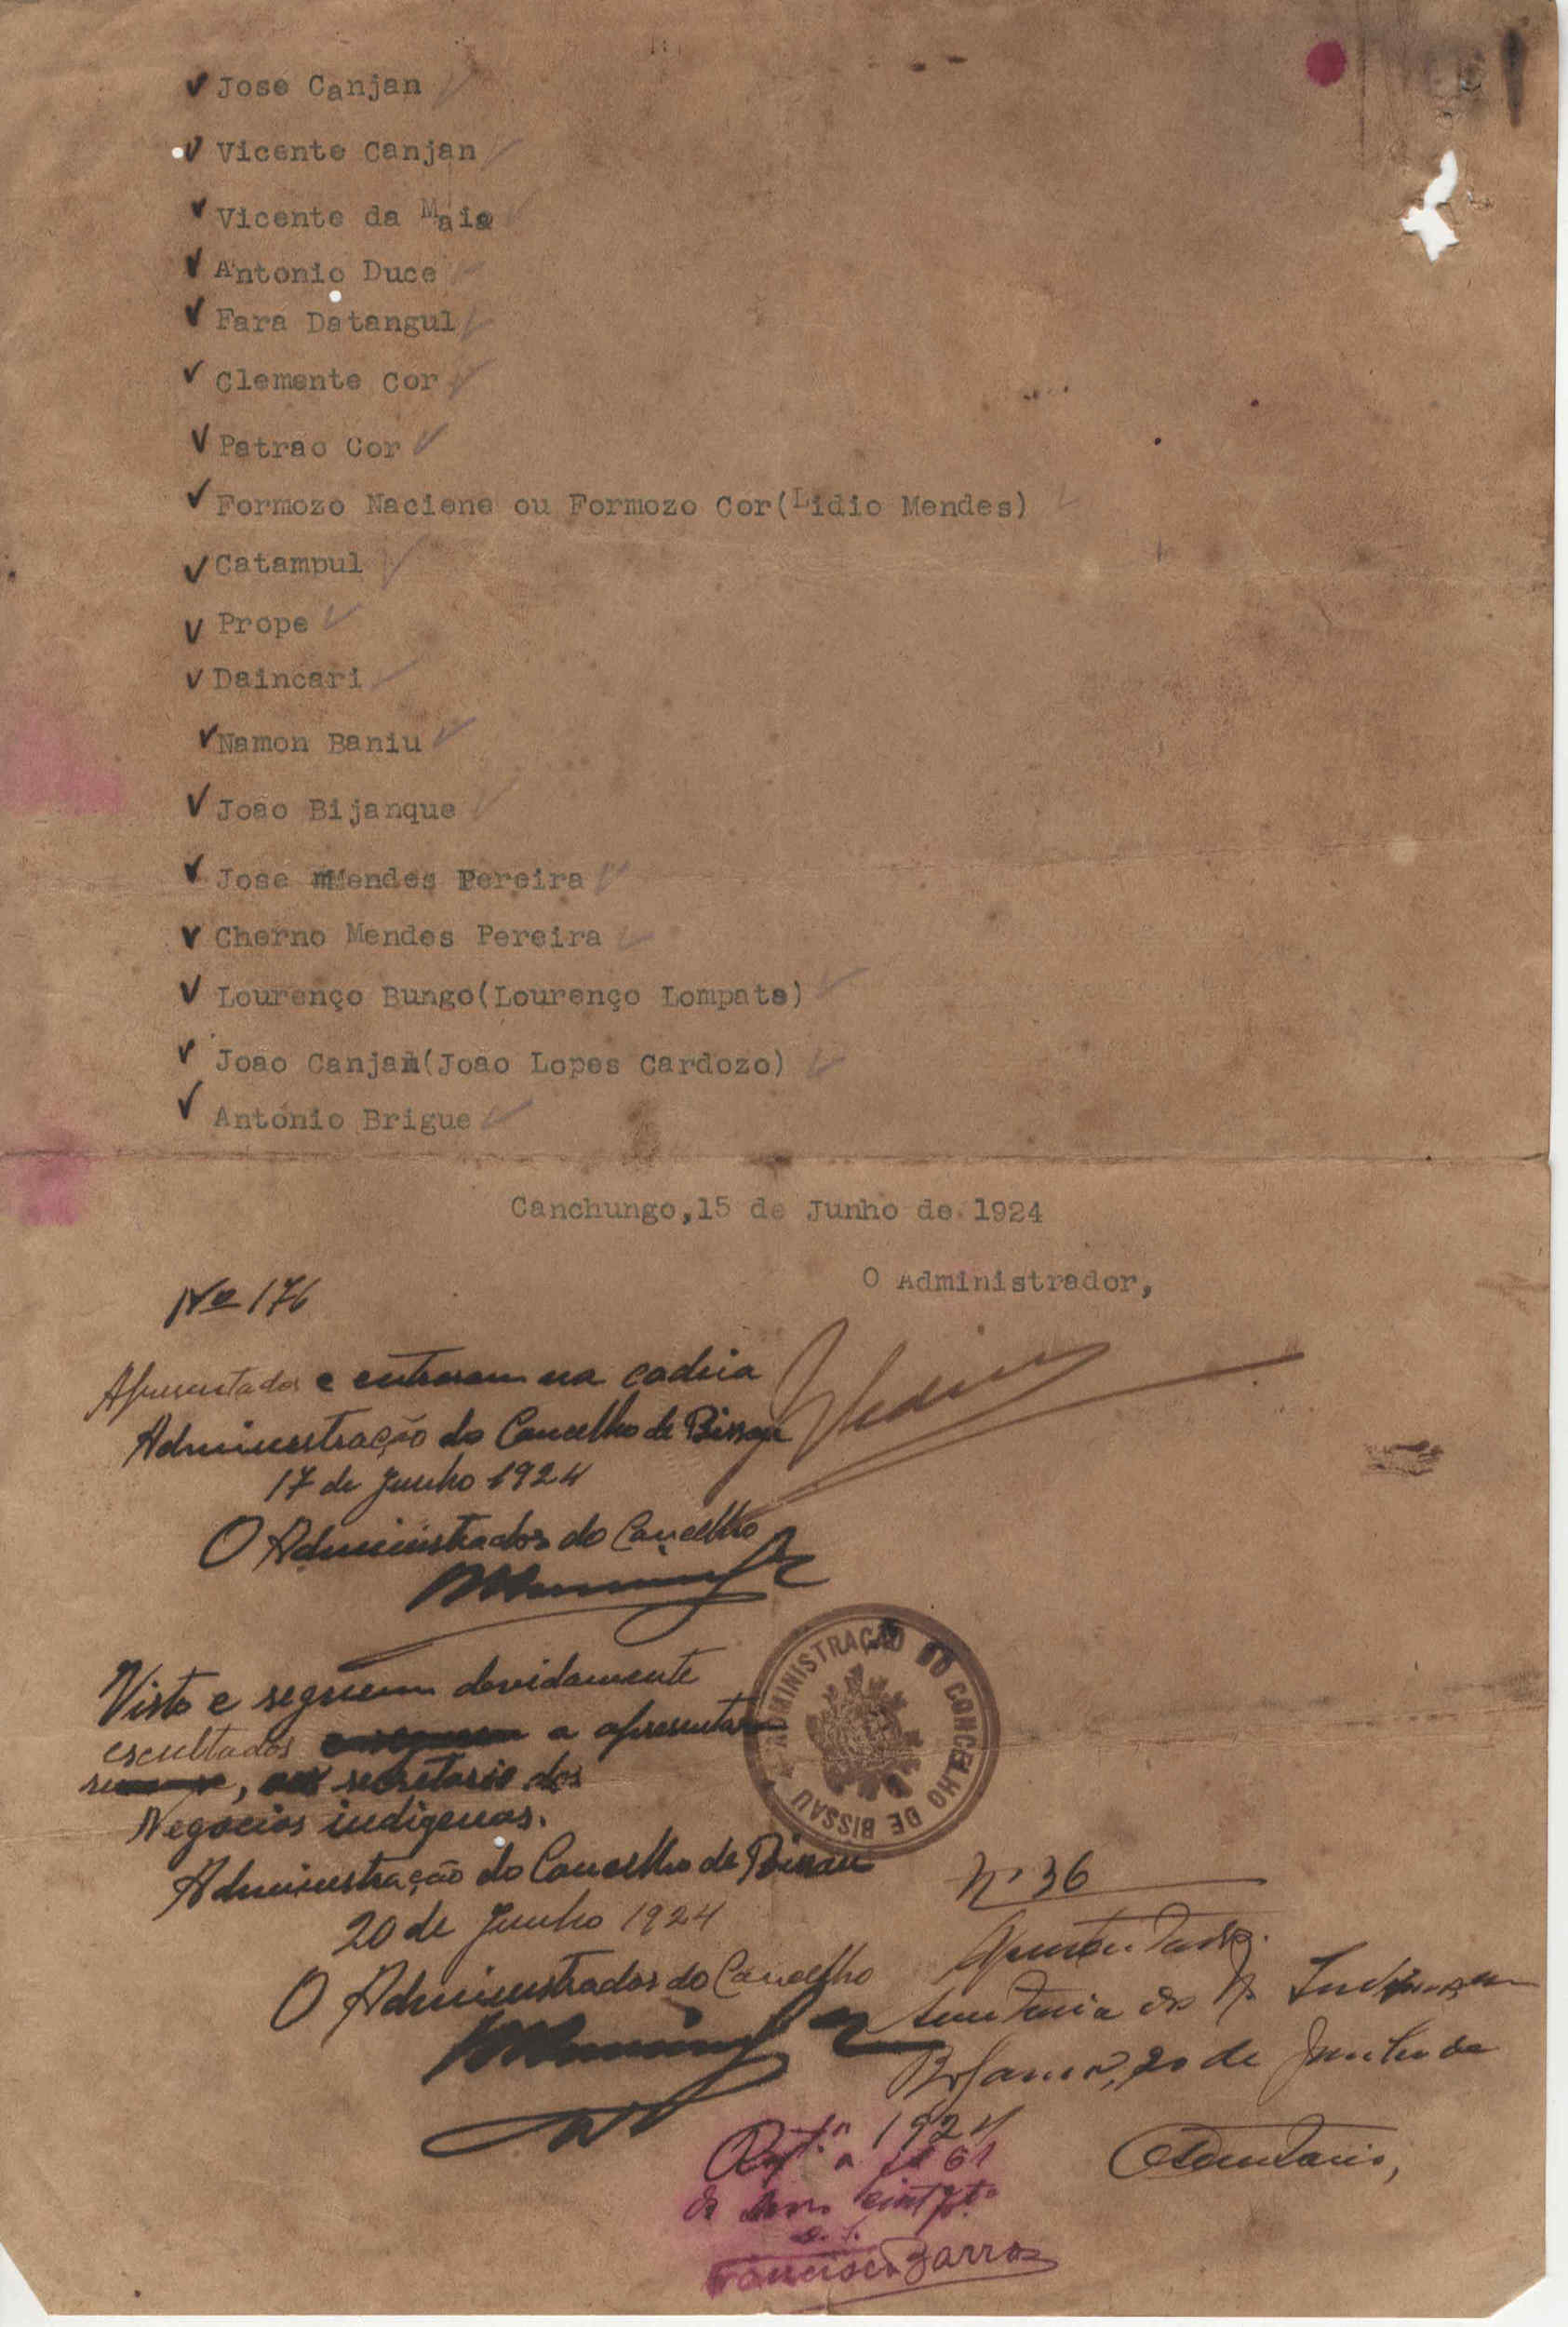 Jose Canjan
Vicente Canjan
Vicente da Maia
Antonio Duce
Fara Datangul
Clemente Cor
Patrao Cor
Formozo Naciene ou Formozo Cor(Lidio Mendes)
Catampul
Prope
Daincari
Namon Baniu
João Bijanque
Jose mMendes Pereira
Cherno Mendes Pereira
Lourenço Bungo(Lourenço Lompate)
Joao Canjan(Joao Lopes Cardozo)
Antonio Brigue
Canchungo,15 de Junho de 1924
O Administrador,
No 176
Apresentados e entraram na cadeia
Administração do Concelho de Bissau
17 de Junho 1924
O Administrador do Concelho
Visto e seguem devidamente
escultados a apresentar
secretario dos
Negocios indigenas.
ADMINISTRAÇÃO DO CONCELHO DE BISSAU
Administração do Concelho de Bissau
20 de Junho 1924
O Administrador do Concelho
Nº 36
Apresentados.
Secretaria dos N. Indigenas em
Bolama, 20 de Junho de
1924
O Secretario,
Regt.º a fl 61
do
Francisco Barros